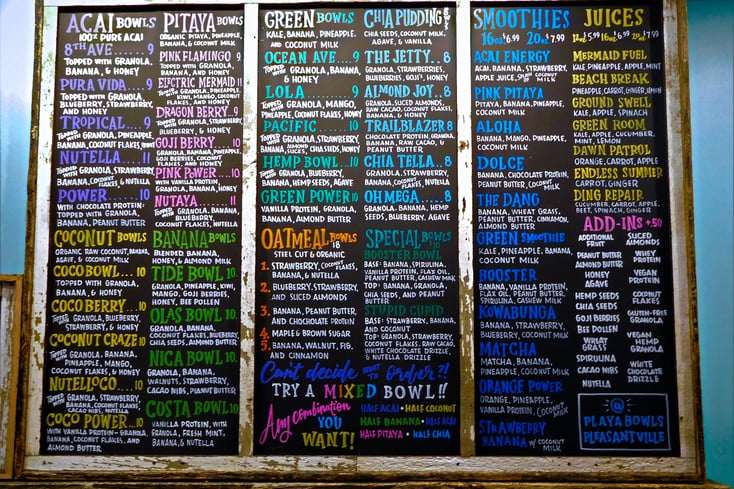 AÇAÍ BOWLS
100% PURE ACAI
8TH AVE.....9
TOPPED WITH GRANOLA,
BANANA, & HONEY
PURA VIDA...9
TOPPED WITH GRANOLA,
BLUEBERRY, STRAWBERRY,
& HONEY
TROPICAL...9
TOPPED WITH GRANOLA, PINEAPPLE,
MANGO, COCONUT FLAKES,
& HONEY
NUTELLA...11
TOPPED WITH GRANOLA, STRAWBERRY,
BANANA, COCONUT FLAKES,
& NUTELLA
POWER......10
WITH CHOCOLATE PROTEIN-
TOPPED WITH GRANOLA,
BANANA, PEANUT BUTTER
COCONUT BOWLS
ORGANIC RAW COCONUT, BANANA,
AGAVE, & COCONUT MILK
COCO BOWL...10
TOPPED WITH GRANOLA,
BANANA, & HONEY
COCO BERRY...10
TOPPED WITH GRANOLA, BLUEBERRY,
STRAWBERRY, & HONEY
COCONUT CRAZE 10
TOPPED WITH GRANOLA, BANANA,
PINEAPPLE, MANGO,
COCONUT FLAKES, & HONEY
NUTELLOCO....10
TOPPED WITH GRANOLA, STRAWBERRY,
BANANA, COCONUT FLAKES,
CACAO NIBS, NUTELLA
COCO POWER...10
WITH VANILLA PROTEIN- GRANOLA,
BANANA, COCONUT FLAKES, AND
ALMOND BUTTER
PITAYA BOWLS
ORGANIC PITAYA, PINEAPPLE,
BANANA, & COCONUT MILK
PINK FLAMINGO 9
TOPPED WITH GRANOLA,
BANANA, AND HONEY
ELECTRIC MERMAID 11
PINEAPPLE, MANGO, COCONUT
FLAKES, AND HONEY
DRAGON BERRY..9
TOPPED WITH GRANOLA, STRAWBERRY,
BLUEBERRY, & HONEY
GOJI BERRY ...10
TOPPED WITH GRANOLA, PINEAPPLE,
GOJI BERRIES, COCONUT
FLAKES, AND HONEY
PINK POWER...10
WITH VANILLA PROTEIN-
GRANOLA, BANANA, HONEY
NUTAYA.......11
TOPPED WITH GRANOLA, BANANA,
BLUEBERRY,
COCONUT FLAKES, & NUTELLA
BANANA BOWLS
BLENDED BANANA,
HONEY, & ALMOND MILK
TIDE BOWL.10
GRANOLA, PINEAPPLE, KIWI,
MANGO, GOJI BERRIES,
HONEY, BEE POLLEN
OLAS BOWL.10
GRANOLA, BANANA,
COCONUT FLAKES, BLUEBERRY,
CHIA SEEDS, ALMOND BUTTER
NICA BOWL 10
GRANOLA, BANANA,
WALNUTS, STRAWBERRY,
CACAO NIBS, PEANUT BUTTER
COSTA BOWL 10
VANILLA PROTEIN, WITH
GRANOLA, FRESH MINT,
BANANA, & NUTELLA
GREEN BOWLS
KALE, BANANA, PINEAPPLE,
AND COCONUT MILK
OCEAN AVE...9
TOPPED WITH GRANOLA, BANANA,
& HONEY
LOLA..........9
TOPPED WITH GRANOLA, MANGO,
PINEAPPLE, COCONUT FLAKES, HONEY
PACIFIC......10
TOPPED WITH GRANOLA, STRAWBERRY,
BANANA, ALMOND SLICES, CHIA SEEDS, HONEY
HEMP BOWL...10
GRANOLA, BLUEBERRY,
BANANA, HEMP SEEDS, AGAVE
GREEN POWER 10
VANILLA PROTEIN, GRANOLA,
BANANA, ALMOND BUTTER
OATMEAL BOWLS
$8
STEEL CUT & ORGANIC
1. STRAWBERRY, COCONUT FLAKES,
BANANA, & NUTELLA
2. BLUEBERRY, STRAWBERRY,
AND SLICED ALMONDS
3. BANANA, PEANUT BUTTER,
AND CHOCHOLATE PROTEIN
4. MAPLE & BROWN SUGAR
5. BANANA, WALNUT, FIG,
AND CINNAMON
CHIA PUDDING
CHIA SEEDS, COCONUT MILK,
AGAVE, & VANILLA
THE JETTY..8
GRANOLA, STRAWBERRIES,
BLUEBERRIES, GOJI, HONEY
ALMOND JOY..8
GRANOLA, SLICED ALMONDS,
RAW CACAO, COCONUT FLAKES,
BANANA, & ALMOND BUTTER
TRAILBLAZER 8
CHOCOLATE PROTEIN, GRANOLA,
BANANA, RAW CACAO, &
PEANUT BUTTER
CHIA TELLA..8
GRANOLA, STRAWBERRY,
BANANA, COCONUT FLAKES, NUTELLA
OH MEGA..8
GRANOLA, BANANA, HEMP
SEEDS, BLUEBERRY, AGAVE
SPECIAL BOWLS
$10
BOOSTER BOWL
BASE: BANANA, SPIRULINA,
VANILLA PROTEIN, FLAX OIL,
PEANUT BUTTER, CASHEW MILK
TOP: BANANA, GRANOLA,
CHIA SEEDS, AND PEANUT
BUTTER
STUPID CUPID
BASE: STRAWBERRY, BANANA,
AND COCONUT
TOP: GRANOLA, STRAWBERRY,
COCONUT FLAKES, RAW CACAO,
WHITE CHOCOLATE DRIZZLE,
& NUTELLA DRIZZLE
Can't decide WHAT TO Order?!
TRY A MIXED BOWL!!
Any combination
YOU
WANT!
HALF ACAI • HALF COCONUT
HALF BANANA • HALF ACAI
HALF PITAYA • HALF CHIA
SMOOTHIES
16oz $6.99 20oz $7.99
ACAI ENERGY
ACAI, BANANA, STRAWBERRY,
APPLE JUICE, SPLASH COCONUT MILK
PINK PITAYA
PITAYA, BANANA, PINEAPPLE,
COCONUT MILK
ALOHA
BANANA, MANGO, PINEAPPLE,
COCONUT MILK
DOLCE
BANANA, CHOCOLATE PROTEIN,
PEANUT BUTTER, COCONUT MILK
THE DANG
BANANA, WHEAT GRASS,
PEANUT BUTTER, CINNAMON,
ALMOND BUTTER
GREEN SMOOTHIE
KALE, PINEAPPLE, BANANA,
COCONUT MILK
BOOSTER
BANANA, VANILLA PROTEIN,
FLAX OIL, PEANUT BUTTER,
SPIRULINA, CASHEW MILK
KOWABUNGA
BANANA, STRAWBERRY,
BLUEBERRY, COCONUT MILK
MATCHA
MATCHA, BANANA,
PINEAPPLE, COCONUT MILK
ORANGE POWER
ORANGE, PINEAPPLE,
VANILLA PROTEIN, COCONUT MILK
STRAWBERRY
BANANA W/ COCONUT MILK
JUICES
12oz $6.99 16oz $7.99
MERMAID FUEL
KALE, PINEAPPLE, APPLE, MINT
BEACH BREAK
PINEAPPLE, CARROT, GINGER, LEMON
GROUND SWELL
KALE, APPLE, SPINACH
GREEN ROOM
KALE, APPLE, CUCUMBER,
MINT, LEMON
DAWN PATROL
ORANGE, CARROT, APPLE
ENDLESS SUMMER
CARROT, GINGER
DING REPAIR
CUCUMBER, CARROT, APPLE,
BEET, SPINACH, GINGER
ADD-INS +.50
ADDITIONAL FRUIT
PEANUT BUTTER
ALMOND BUTTER
HONEY
AGAVE
HEMP SEEDS
CHIA SEEDS
GOJI BERRIES
BEE POLLEN
WHEAT GRASS
SPIRULINA
CACAO NIBS
NUTELLA
SLICED ALMONDS
WHEY PROTEIN
VEGAN PROTEIN
COCONUT FLAKES
GLUTEN-FREE GRANOLA
VEGAN HEMP GRANOLA
WHITE CHOCOLATE DRIZZLE
@
PLAYA BOWLS
PLEASANTVILLE